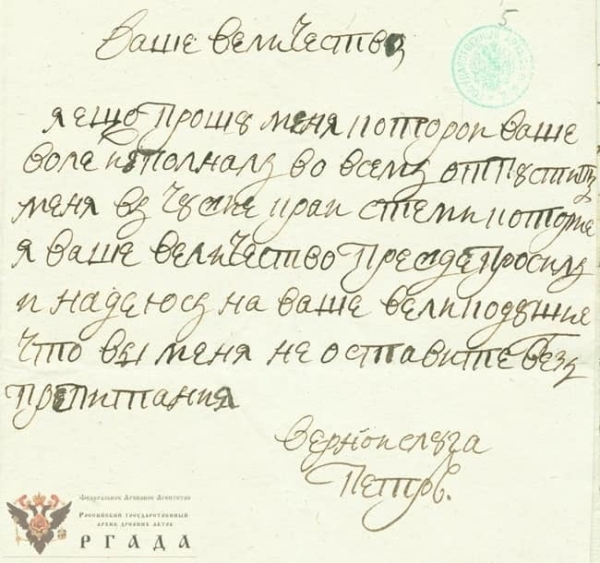 5
Ваше величество
я ещо прошу меня которои ваше
воле исполналъ во всемъ отпустить
меня въ чужие краи стеми которие
я ваше величество прежде просилъ
и надеюсь на ваше великодушие
что вы меня не оставите безъ
препитания
верной слуга
Петръ.
Федеральное Архивное Агентство
Российский государственный
архив древних актов
РГАДА